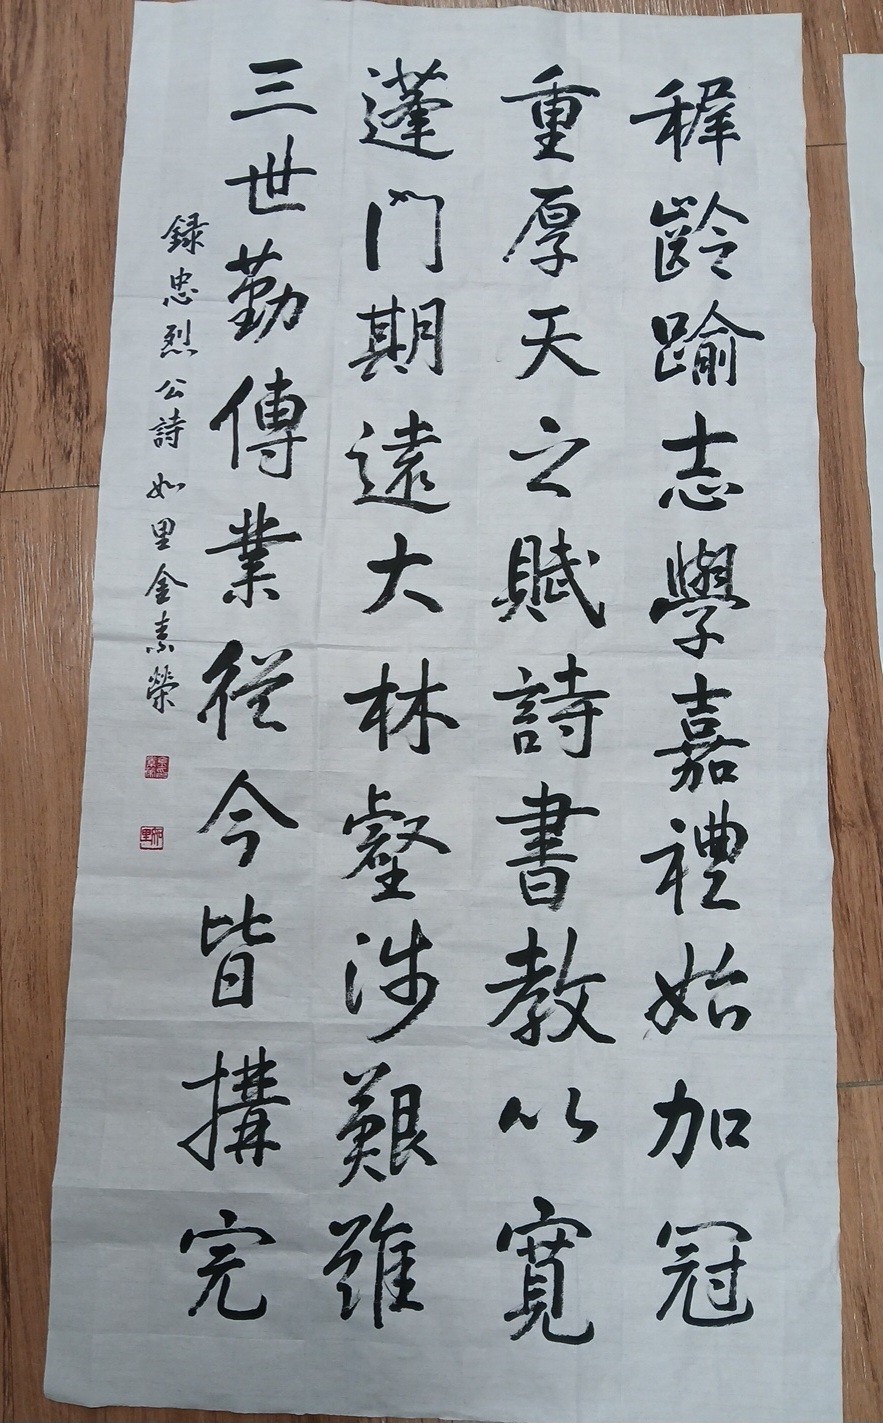 稺齡踰志學嘉禮始加冠
重厚天之賦詩書教以寬
蓬門期遠大林壑涉艱難
三世勤傳業從今皆搆完
録忠烈公詩 如里金素榮
如里